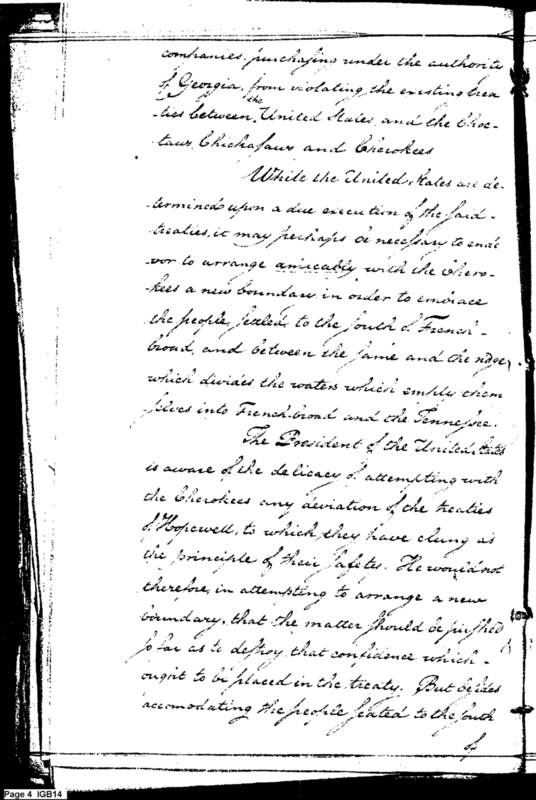 companies, purchasing under the authority
of Georgia, from violating the existing trea
-ties between the United States, and the Choc-
taws, Chickasaws and Cherokees
While the United States are de-
termined upon a due execution of the said-
treaties, it may perhaps be necessary to ende
vor to arrange amicably with the Chero-
kees a new boundary in order to embrace
the people, settled, to the south of French-
broad, and between the same and the ridge,
which divides the waters which empty them
selves into French broad and the Tennessee.
The President of the United States
is aware of the delicacy of attempting with
the Cherokees any deviation of the treaties
of Hopewell, to which, they have clung as
the principle of their safety. He would not
therefore, in attempting to arrange a new
boundary, that the matter should be pushed
so far as to destroy, that confidence which-
ought to be placed in the treaty. But besides
accomodating the people seated to the south
of
Page 4 IGB14